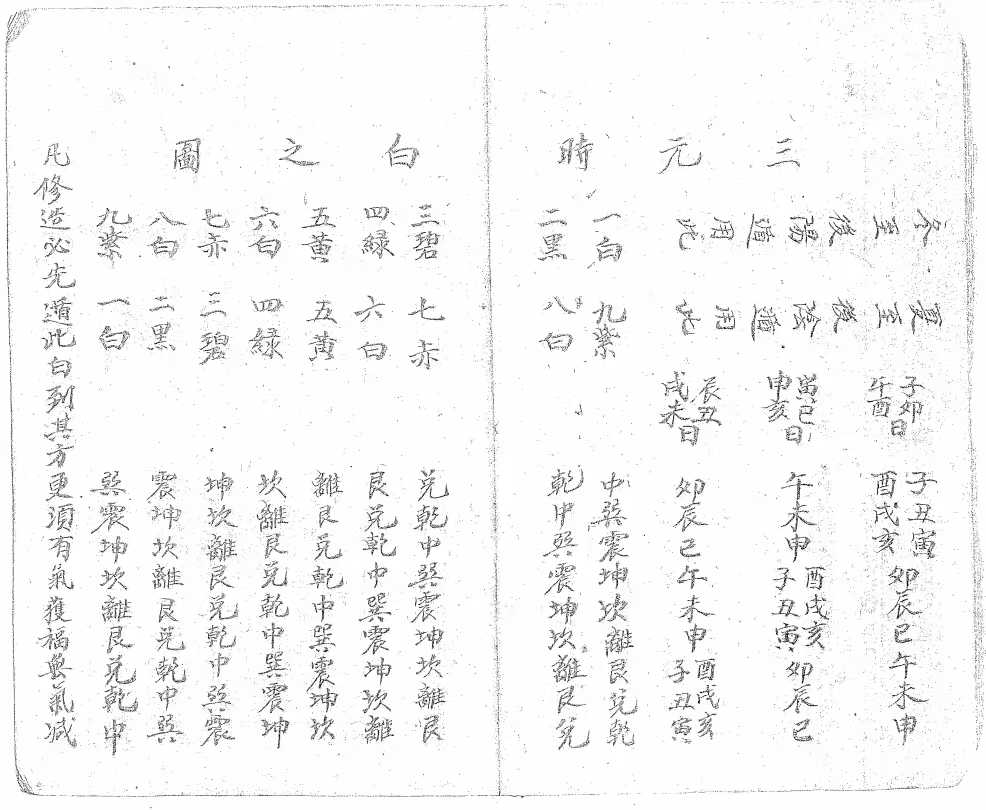 三元時白之圖
冬至後陽遁用此
夏至後陰遁用此
子卯午酉日 子丑寅酉戌亥 卯辰巳午未申
寅巳申亥日 午未申酉戌亥子丑寅卯辰巳
辰丑戌未日 卯辰巳午未申酉戌亥子丑寅
一白 九紫 中巽震坤坎離艮兌乾
二黑 八白 乾中巽震坤坎離艮兌
三碧 七赤 兌乾中巽震坤坎離艮
四綠 六白 艮兌乾中巽震坤坎離
五黃 五黃 離艮兌乾中巽震坤坎
六白 四綠 坎離艮兌乾中巽震坤
七赤 三碧 坤坎離艮兌乾中巽震
八白 二黑 震坤坎離艮兌乾中巽
九紫 一白 巽震坤坎離艮兌乾中
凡修造必先遁此白到其方更須有氣獲福無氣減